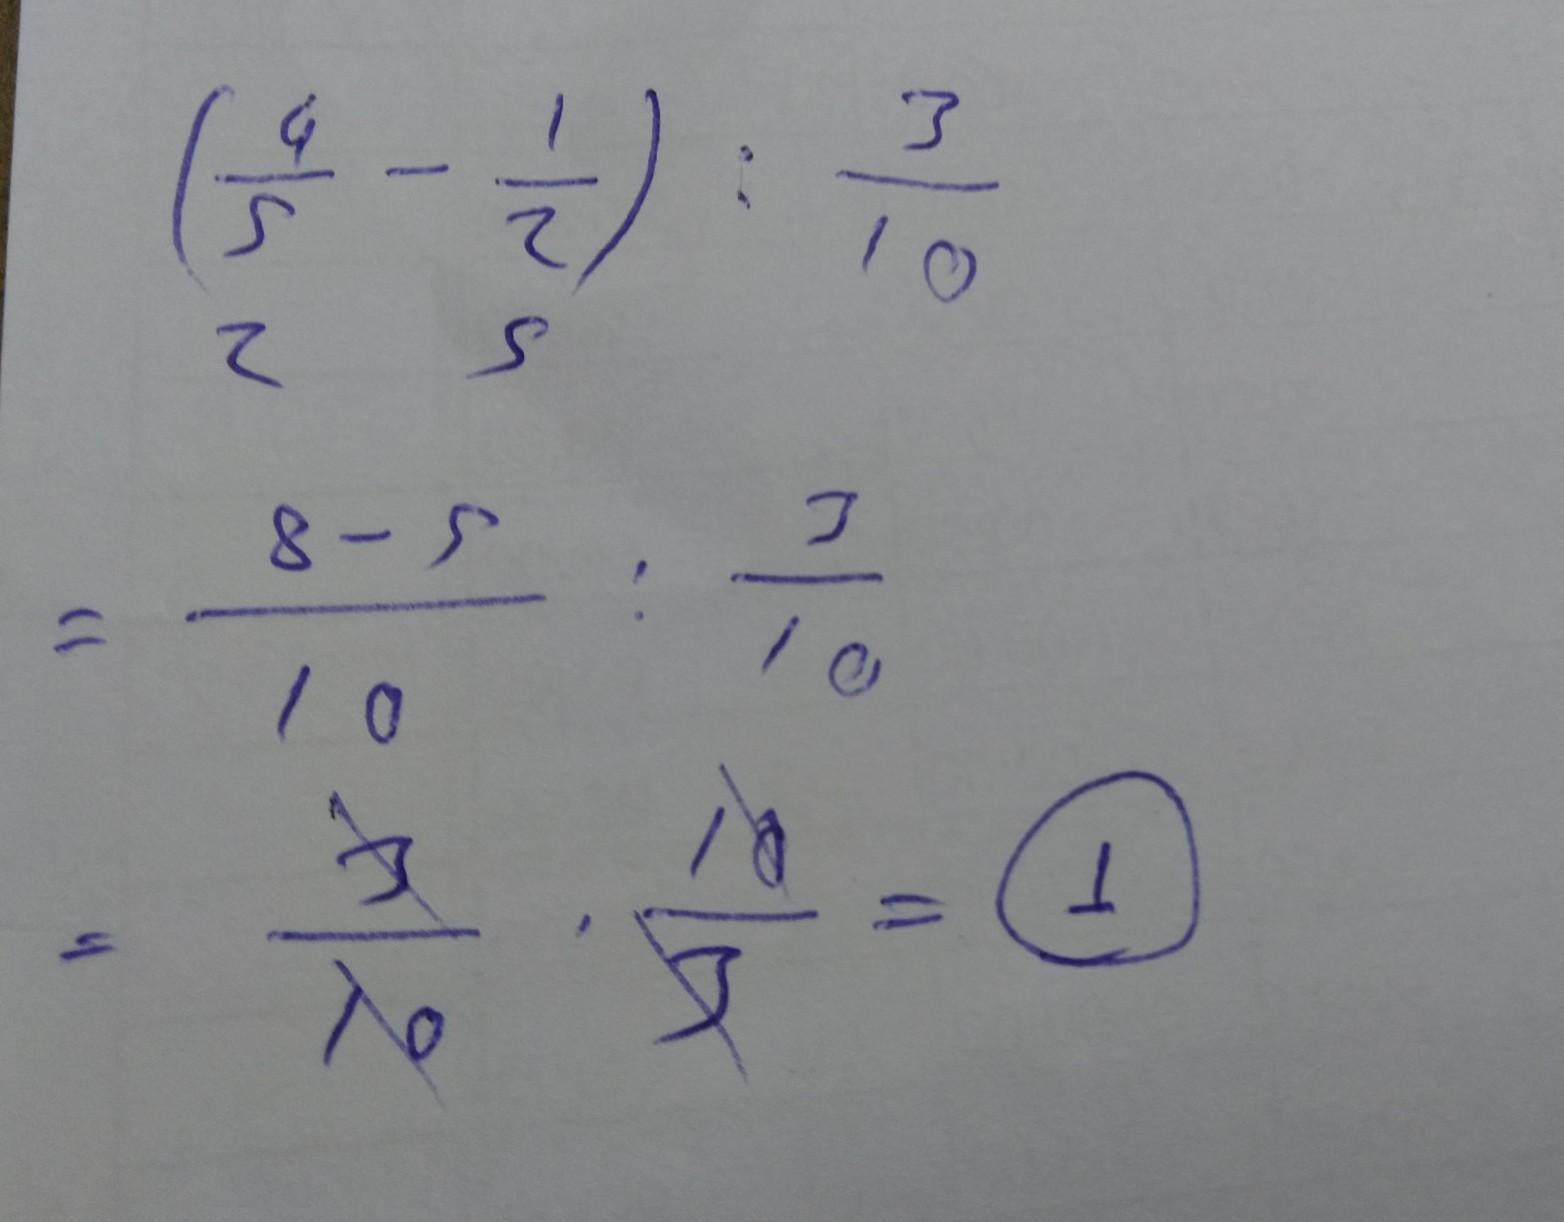 (4/5 - 1/2) : 3/10
2 5
= 8-5/10 : 3/10
= 3/10 · 10/3 = 1